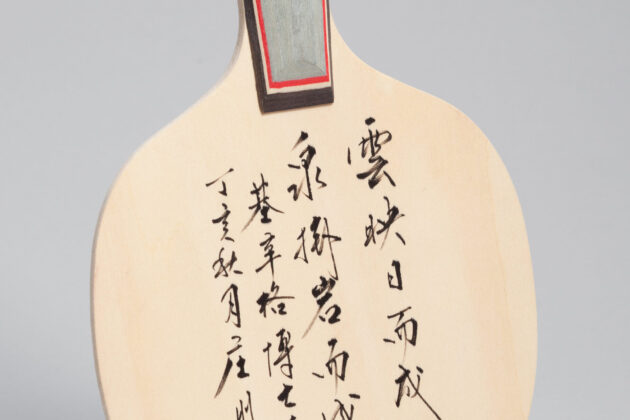 雲映日而成
泉掛岩而成
基辛格博士
丁亥秋月庄則